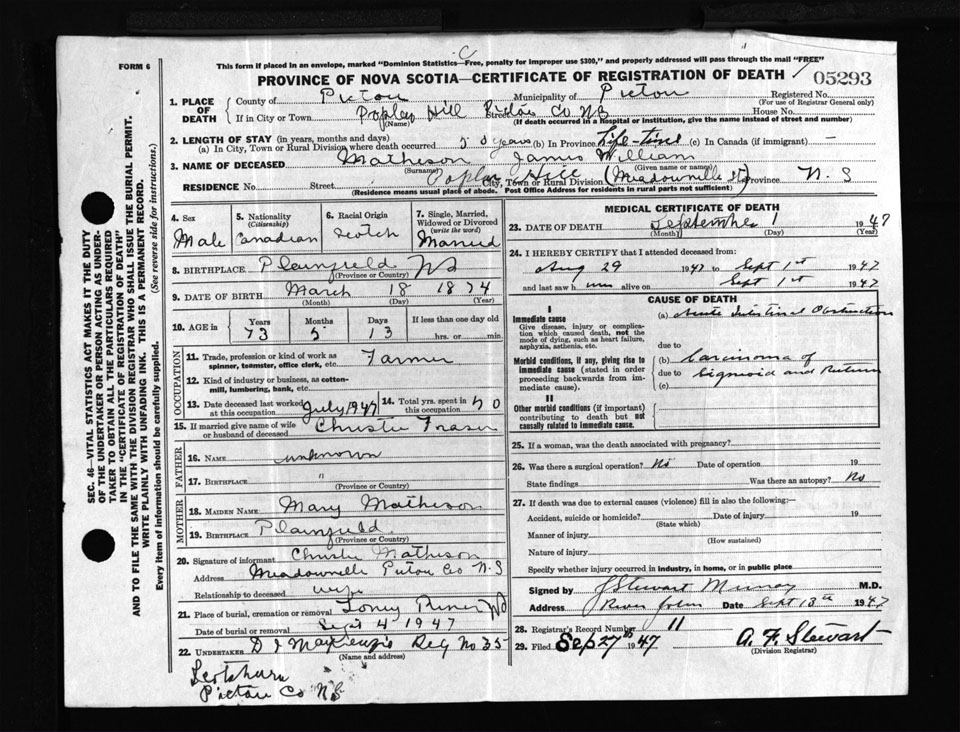 FORM 6
This form if placed in an envelope, marked "Dominion Statistics—Free, penalty for improper use $300," and properly addressed will pass through the mail "FREE"
PROVINCE OF NOVA SCOTIA—CERTIFICATE OF REGISTRATION OF DEATH
05293
1. PLACE OF DEATH { County of Pictou Municipality of Pictou Registered No.
(For use of Registrar General only)
If in City or Town Poplar Hill Street Pictou Co N.S House No.
(Name) (If death occurred in a hospital or institution, give the name instead of street and number)
2. LENGTH OF STAY (in years, months and days)
(a) In City, Town or Rural Division where death occurred years (b) In Province Life-time (c) In Canada (if immigrant) —
3. NAME OF DECEASED Matheson James William
(Surname) (Given name or names)
RESIDENCE No. Street Poplar Hill City, Town or Rural Division (Meadowville Province N. S
(Residence means usual place of abode. Post Office Address for residents in rural parts not sufficient)
4. Sex Male
5. Nationality (Citizenship) Canadian
6. Racial Origin Scotch
7. Single, Married, Widowed or Divorced (write the word) Married
8. BIRTHPLACE Plainfield NS
(Province or Country)
9. DATE OF BIRTH March 18 1874
(Month) (Day) (Year)
10. AGE in Years 73 Months 5 Days 13 If less than one day old hrs. or min.
OCCUPATION
11. Trade, profession or kind of work as spinner, teamster, office clerk, etc. Farmer
12. Kind of industry or business, as cotton-mill, lumbering, bank, etc.
13. Date deceased last worked at this occupation July 1947 14. Total yrs. spent in this occupation 50
15. If married give name of wife or husband of deceased Christie Fraser
FATHER
16. NAME unknown
17. BIRTHPLACE "
(Province or Country)
MOTHER
18. MAIDEN NAME Mary Matheson
19. BIRTHPLACE Plainfield
(Province or Country)
20. Signature of informant Christie Matheson
Address Meadowville Pictou Co N.S
Relationship to deceased wife
21. Place of burial, cremation or removal Toney River NS
Date of burial or removal Sept 4 1947
22. UNDERTAKER D MacKenzie Reg No 35
(Name and address)
Scotsburn
Pictou Co NS
MEDICAL CERTIFICATE OF DEATH
23. DATE OF DEATH September 1 1947
(Month) (Day) (Year)
24. I HEREBY CERTIFY that I attended deceased from:
Aug 29 1947 to Sept 1st 1947
and last saw him alive on Sept 1st 1947
CAUSE OF DEATH
I
Immediate cause
Give disease, injury or complication which caused death, not the mode of dying, such as heart failure, asphyxia, asthenia, etc.
(a) Acute Intestinal Obstruction
due to
Morbid conditions, if any, giving rise to immediate cause (stated in order proceeding backwards from immediate cause).
(b) Carcinoma of
due to Sigmoid and Rectum
(c)
II
Other morbid conditions (if important) contributing to death but not causally related to immediate cause.
25. If a woman, was the death associated with pregnancy?
26. Was there a surgical operation? No Date of operation 19
State findings Was there an autopsy? No
27. If death was due to external causes (violence) fill in also the following:—
Accident, suicide or homicide? Date of injury 19
(State which)
Manner of injury
(How sustained)
Nature of injury
Specify whether injury occurred in industry, in home, or in public place
Signed by J Stewart Murray M.D.
Address River John Date Sept 13th 1947
28. Registrar's Record Number 11
29. Filed Sep 27th 47 A. F. Stewart
(Division Registrar)
SEC. 46—VITAL STATISTICS ACT MAKES IT THE DUTY
OF THE UNDERTAKER OR PERSON ACTING AS UNDER-
TAKER TO OBTAIN ALL THE PARTICULARS REQUIRED
IN THE "CERTIFICATE OF REGISTRATION OF DEATH"
AND TO FILE THE SAME WITH THE DIVISION REGISTRAR WHO SHALL ISSUE THE BURIAL PERMIT.
WRITE PLAINLY WITH UNFADING INK. THIS IS A PERMANENT RECORD.
Every item of information should be carefully supplied. (See reverse side for instructions.)